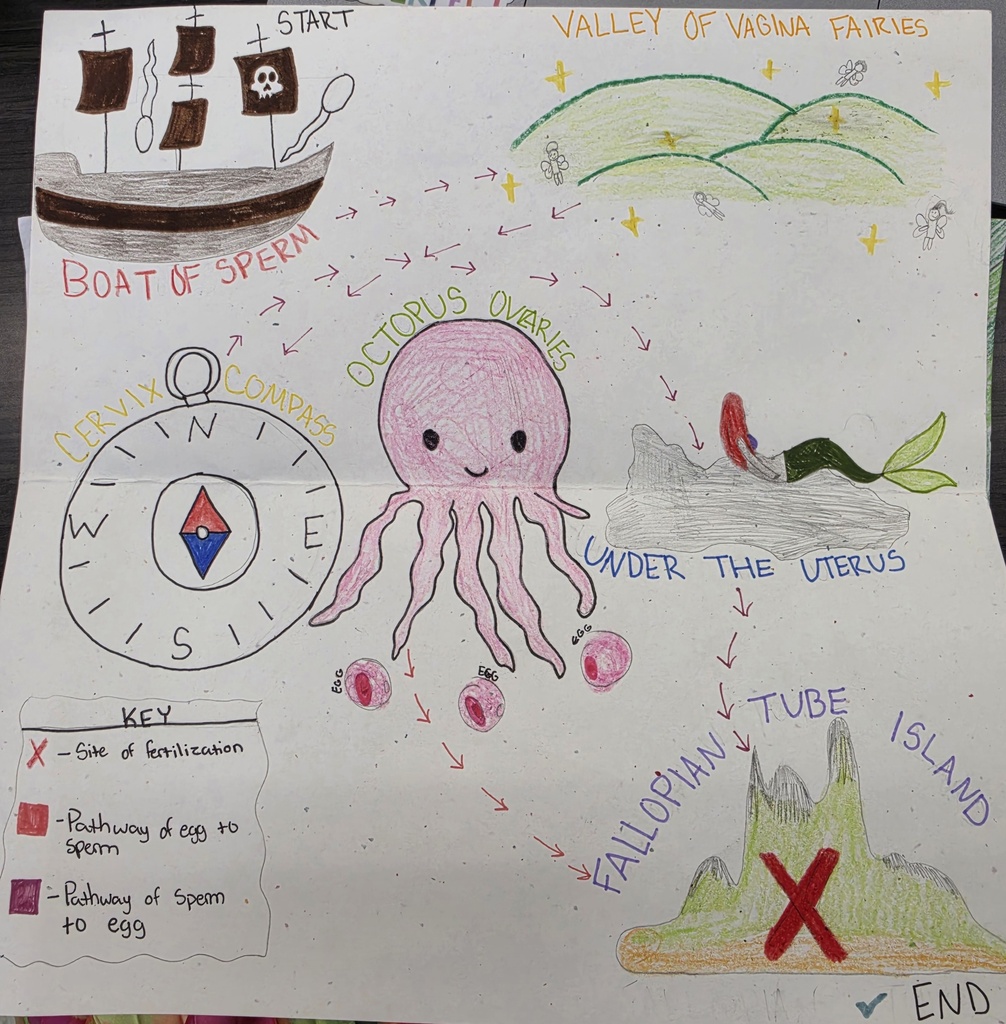 START
VALLEY OF VAGINA FAIRIES
BOAT OF SPERM
OCTOPUS OVARIES
CERVIX COMPASS
N
W
E
S
UNDER THE UTERUS
EGG
EGG
EGG
FALLOPIAN TUBE ISLAND
KEY
X - Site of fertilization
- Pathway of egg to
sperm
- Pathway of Sperm
to egg
X
✓ END